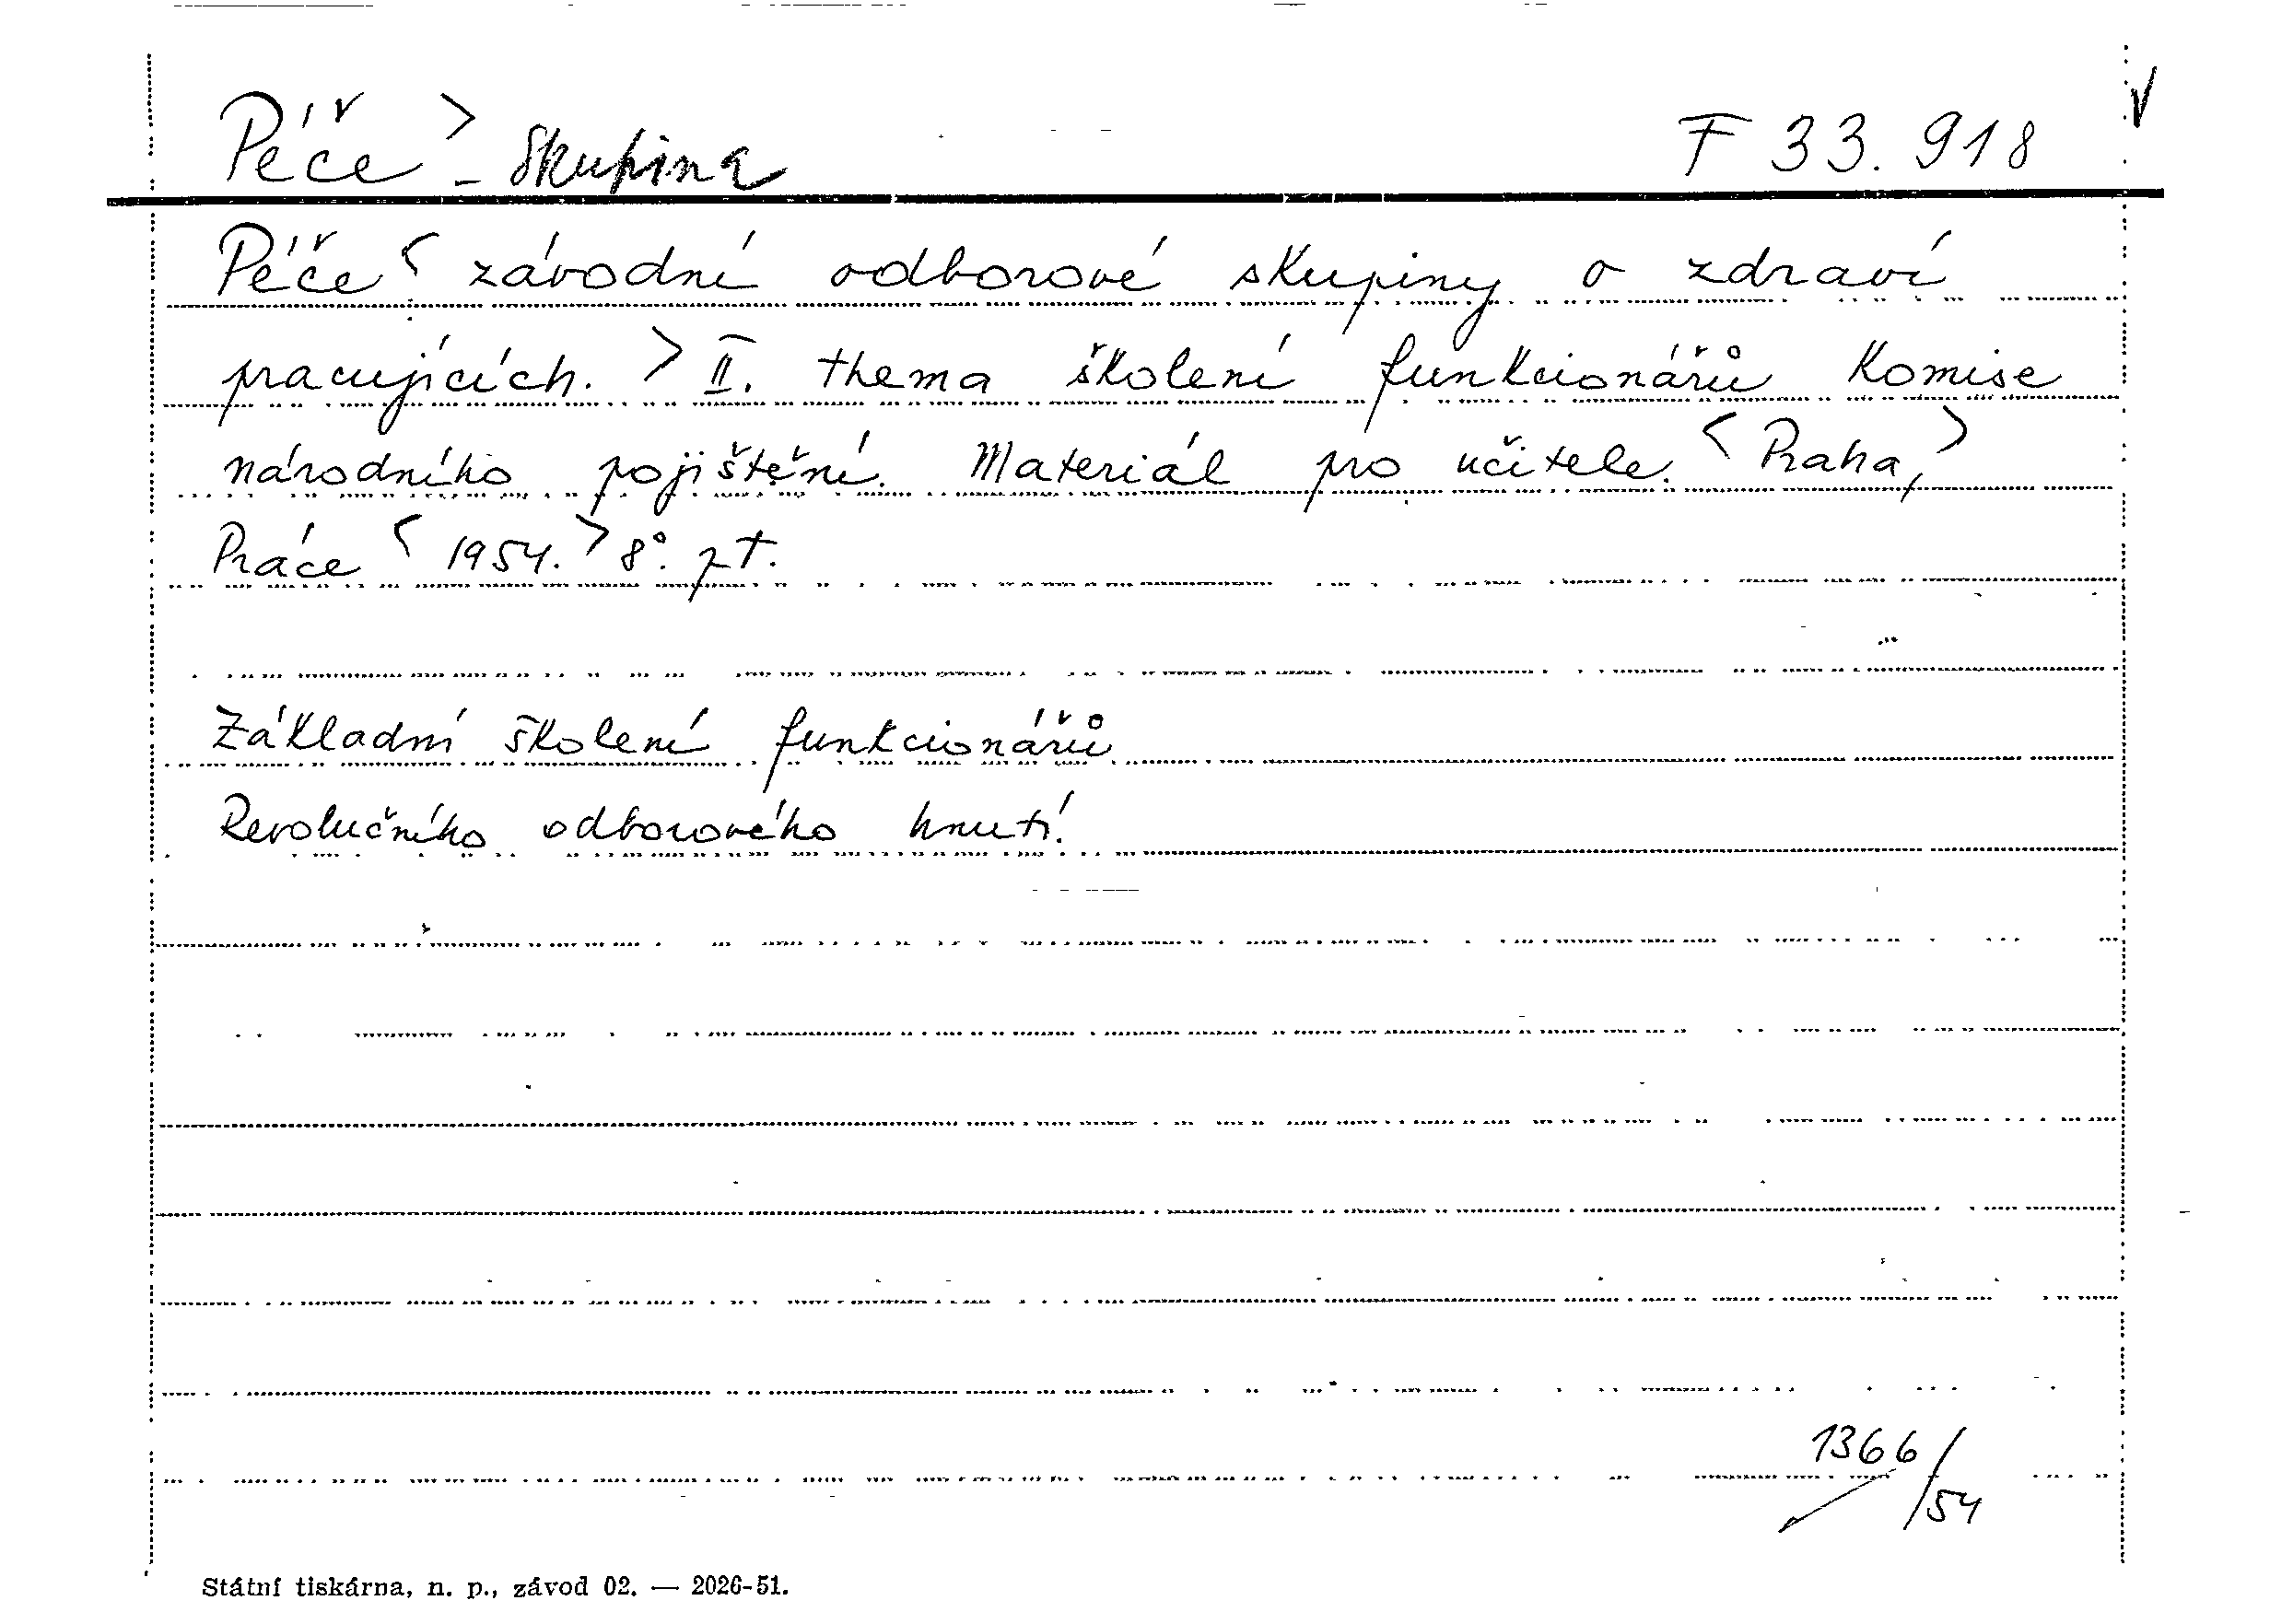 Péče > - skupina F 33.918
Péče < závodní odborové skupiny o zdraví
pracujících. > II. thema školení funkcionářů Komise
národního pojištění. Materiál pro učitele. < Praha, >
Práce < 1954. > 8°. pt.
Základní školení funkcionářů
Revolučního odborového hnutí.
1366/54
Státní tiskárna, n. p., závod 02. — 2026-51.